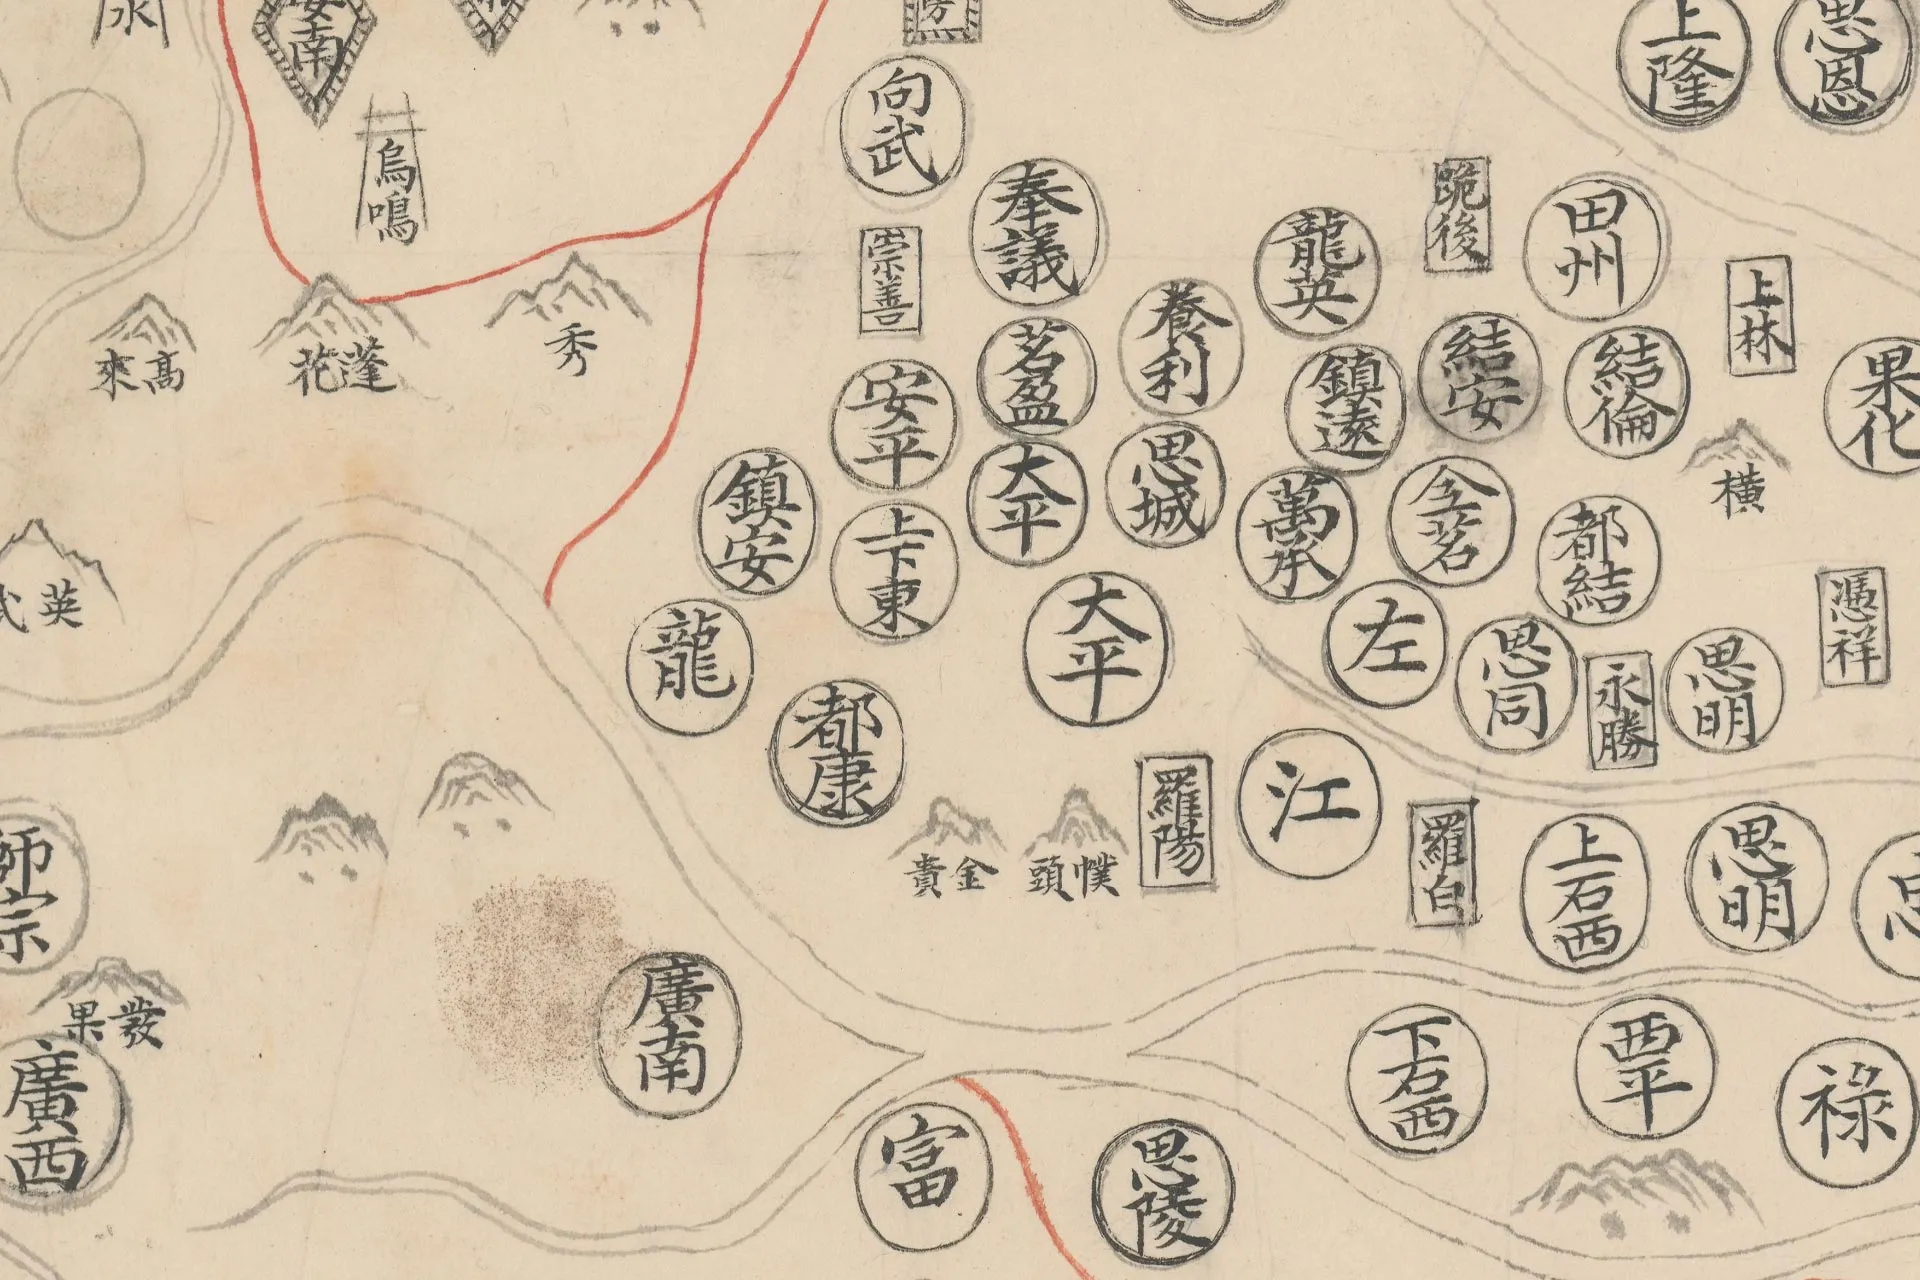 安南
上隆
思恩
向武
烏鳴
奉議
跪後
田州
崇善
龍英
上林
養利
秀
高來
蓬花
茗盈
安平
鎮遠
結安
結倫
果化
大平
思城
橫
鎮安
上下東
萬承
全茗
都結
英武
憑祥
龍
大平
左
思同
永勝
思明
都康
羅陽
江
羅白
金貴
幞頭
上石西
思明
師宗
廣南
發果
下石西
西平
祿
廣西
富
思陵